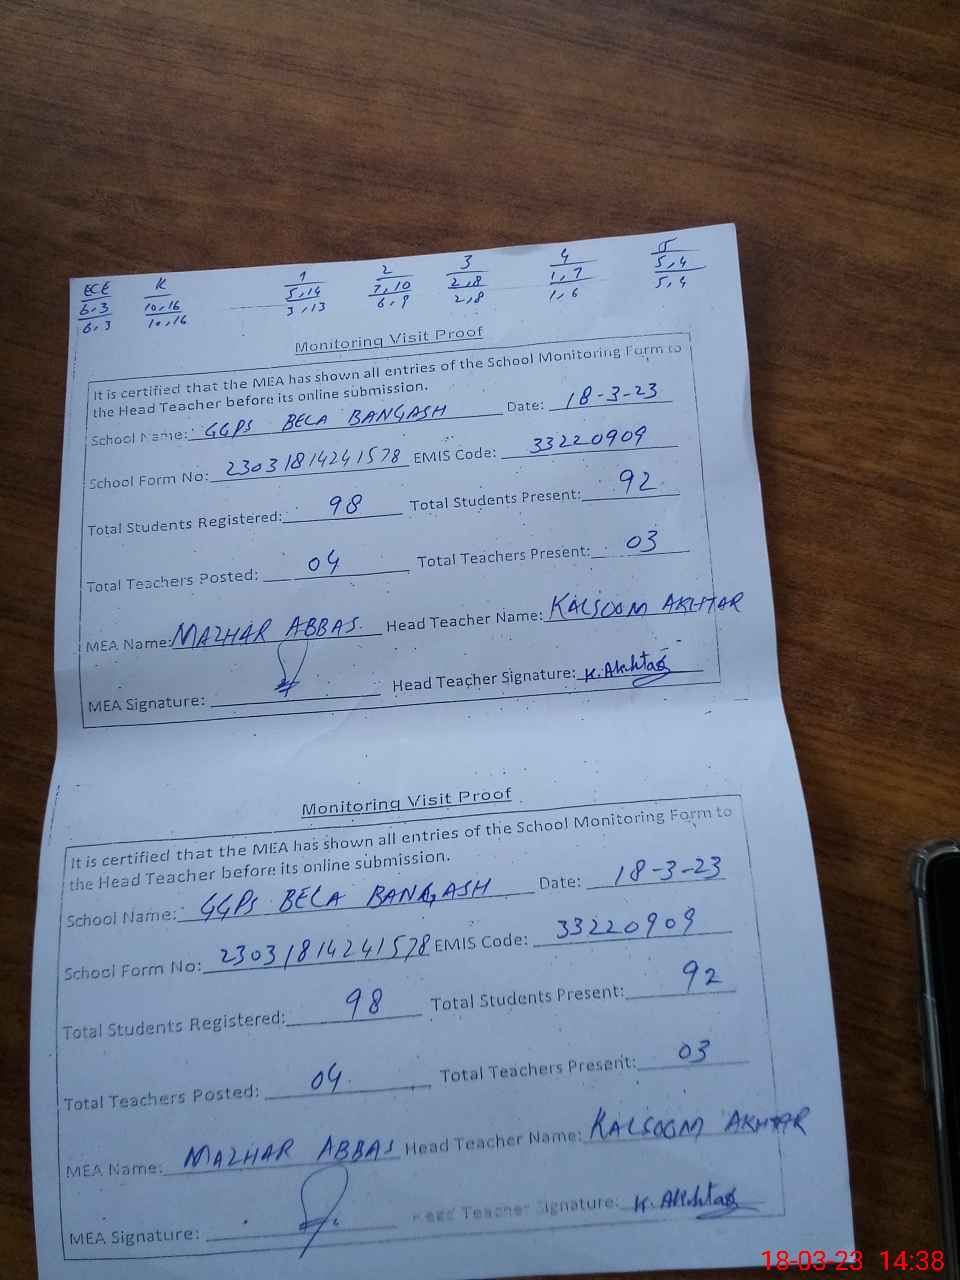 ECE K 1 2 3 4 5
6,3 10,16 5,14 7,10 2,8 1,7 5,4
6,3 10,16 3,13 6,9 2,8 1,6 5,4
Monitoring Visit Proof
It is certified that the MEA has shown all entries of the School Monitoring Form to
the Head Teacher before its online submission.
School Name: GGPS BELA BANGASH Date: 18-3-23
School Form No: 23031814241578 EMIS Code: 33220909
Total Students Registered: 98 Total Students Present: 92
Total Teachers Posted: 04 Total Teachers Present: 03
MEA Name: MAZHAR ABBAS Head Teacher Name: KALSOOM AKHTAR
MEA Signature: Head Teacher Signature: K. Akhtar
Monitoring Visit Proof
It is certified that the MEA has shown all entries of the School Monitoring Form to
the Head Teacher before its online submission.
School Name: GGPS BELA BANGASH Date: 18-3-23
School Form No: 23031814241578 EMIS Code: 33220909
Total Students Registered: 98 Total Students Present: 92
Total Teachers Posted: 04 Total Teachers Present: 03
MEA Name: MAZHAR ABBAS Head Teacher Name: KALSOOM AKHTAR
MEA Signature: Head Teacher Signature: K. Akhtar
18-03-23 14:38